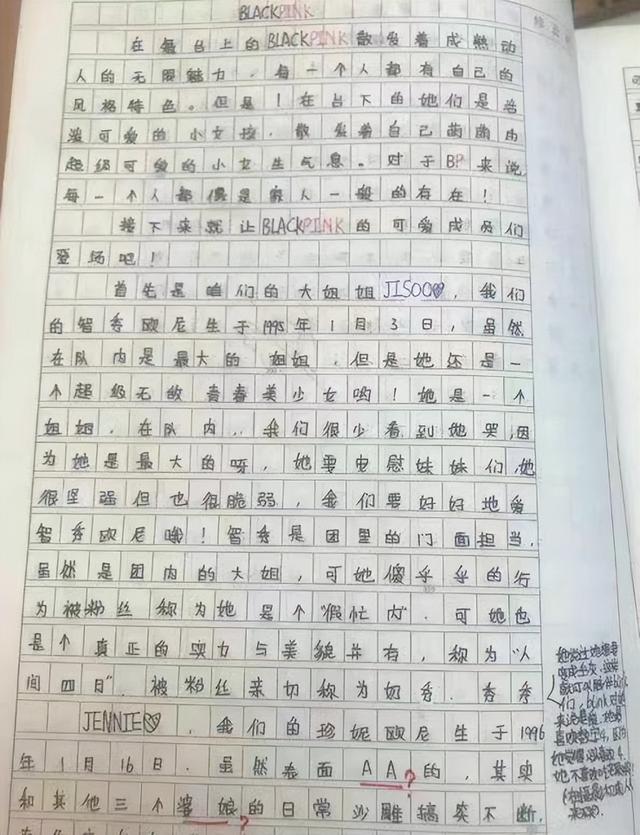 BLACKPINK
在舞台上的BLACKPINK散发着成熟动
人的无限魅力，每一个人都有自己的
风格特色。但是！在台下的她们是活
泼可爱的小女孩，散发着自己萌萌由
超级可爱的小女生气息。对于BP来说
每一个人都像是家人一般的存在！
接下来就让BLACKPINK的可爱成员们
登场吧！
首先是咱们的大姐姐JISOO，我们
的智秀欧尼生于1995年1月3日，虽然
在队内是最大的姐姐，但是她还是一
个超级无敌青春美少女哟！她是一个
姐姐，在队内，我们很少看到她哭，因
为她是最大的呀，她要安慰妹妹们，她
很坚强但也很脆弱，我们要好好地爱
智秀欧尼哦！智秀是团里的门面担当，
虽然是团内的大姐，可她傻乎乎的行
为被粉丝称为她是个“假忙内”，可她也
是个真正的实力与美貌并存，称为“人
间四日”，被粉丝亲切称为奶秀，秀秀
JENNIE，我们的珍妮欧尼生于1996
年1月16日，虽然表面AA的，其实
和其他三个婆娘的日常沙雕搞笑不断，